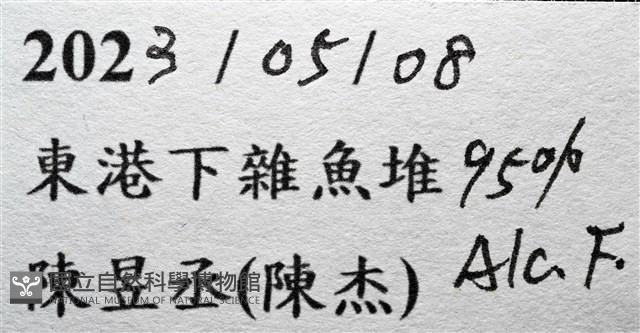 2023/05/08
東港下雜魚堆 95%
陳昱丞(陳杰) Alc. F.
國立自然科學博物館
NATIONAL MUSEUM OF NATURAL SCIENCE